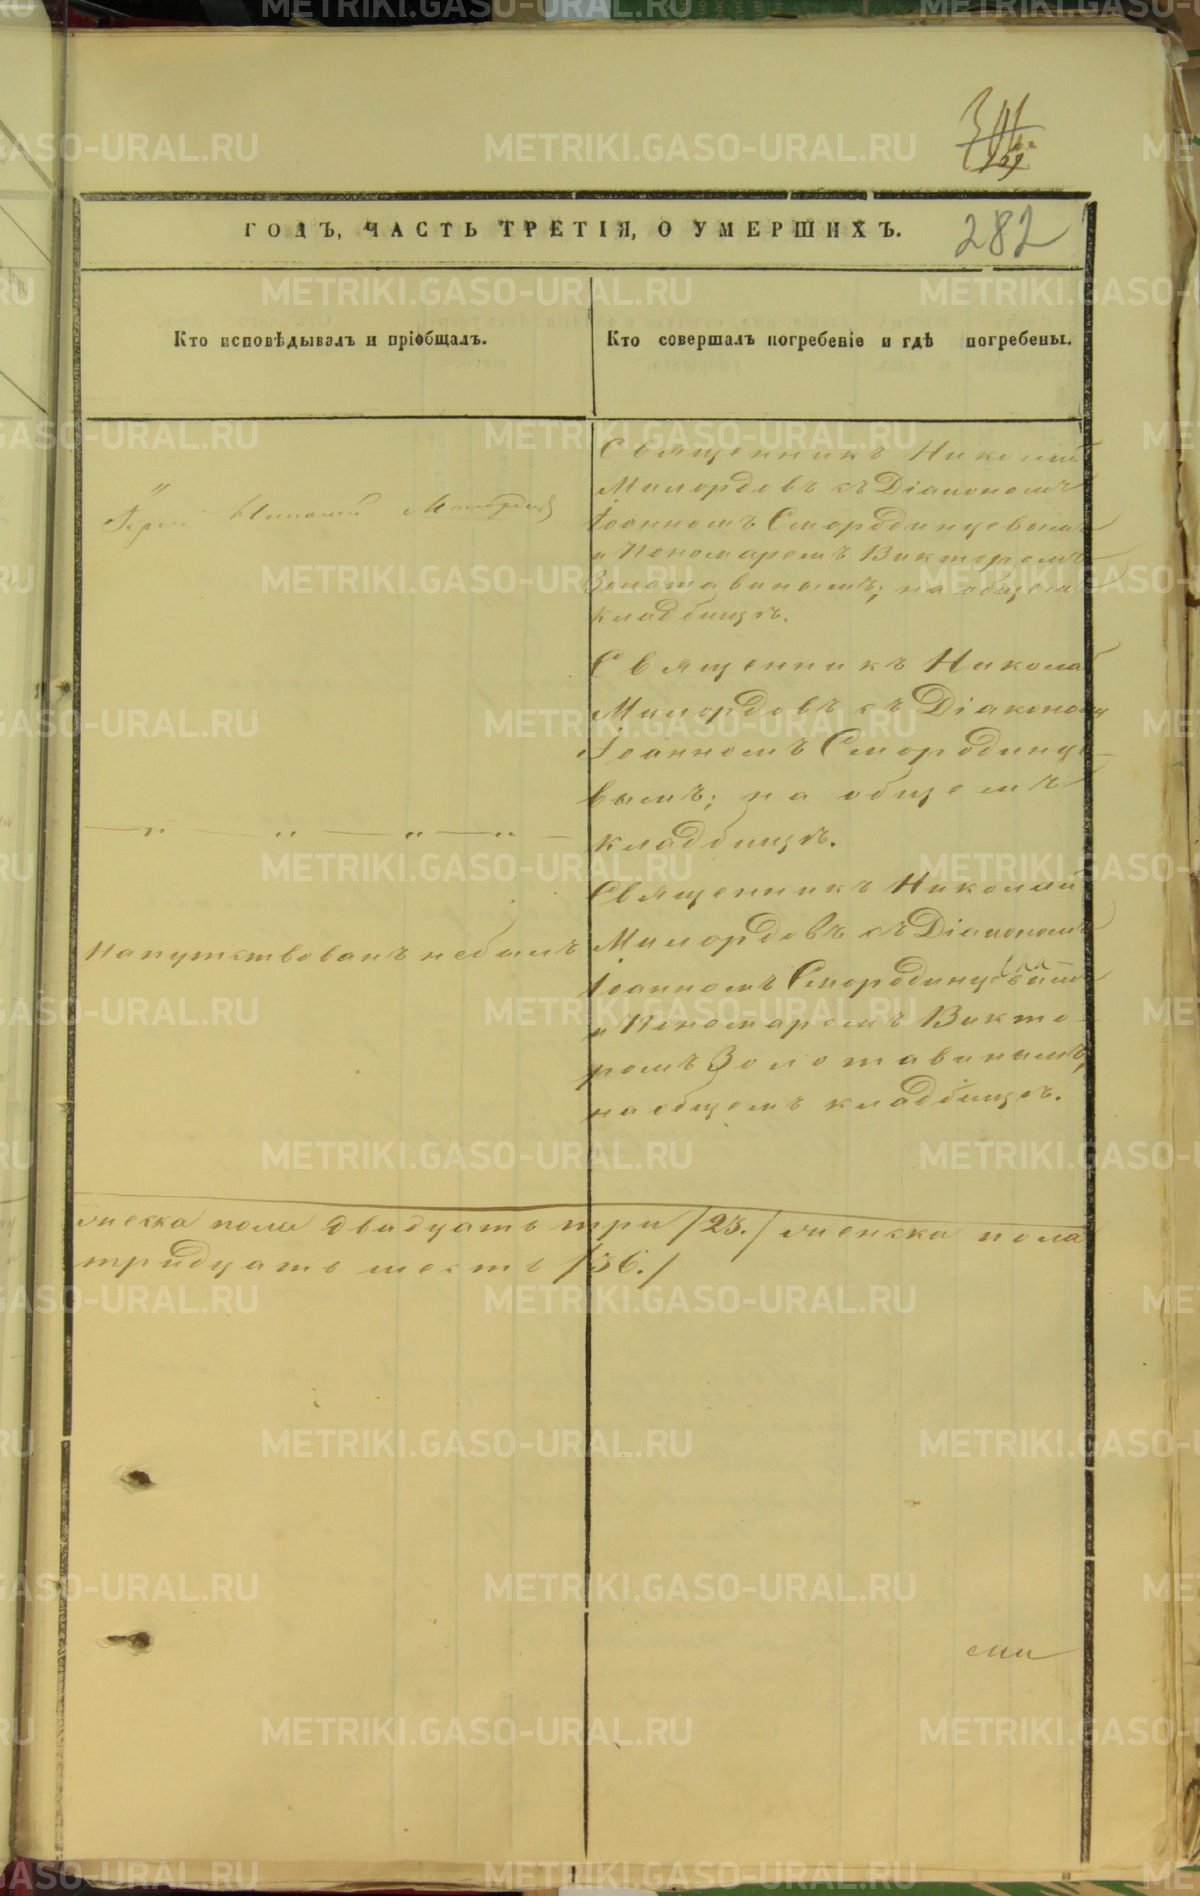 282
ГОДЪ, ЧАСТЬ ТРЕТІЯ, О УМЕРШИХЪ.
Кто исповѣдывалъ и пріобщалъ.
Кто совершалъ погребеніе и гдѣ погребены.
Іерей Николай Милордовъ
Священникъ Николай
Милордовъ съ Діакономъ
Іоанномъ Смородинцевымъ
и Пономаремъ Викторомъ
Золотавинымъ; на общемъ
кладбищѣ.
— „ — „ — „ — „ —
Священникъ Николай
Милордовъ съ Діакономъ
Іоанномъ Смородинце-
вымъ; на общемъ
кладбищѣ.
Напутствованъ небылъ
Священникъ Николай
Милордовъ съ Діакономъ
Іоанномъ Смородинцевымъ
и Пономаремъ Викто-
ромъ Золотавинымъ,
на общемъ кладбищѣ.
мужеска пола двадцать три /23./ женска пола
тридцать шесть /36./
METRIKI.GASO-URAL.RU